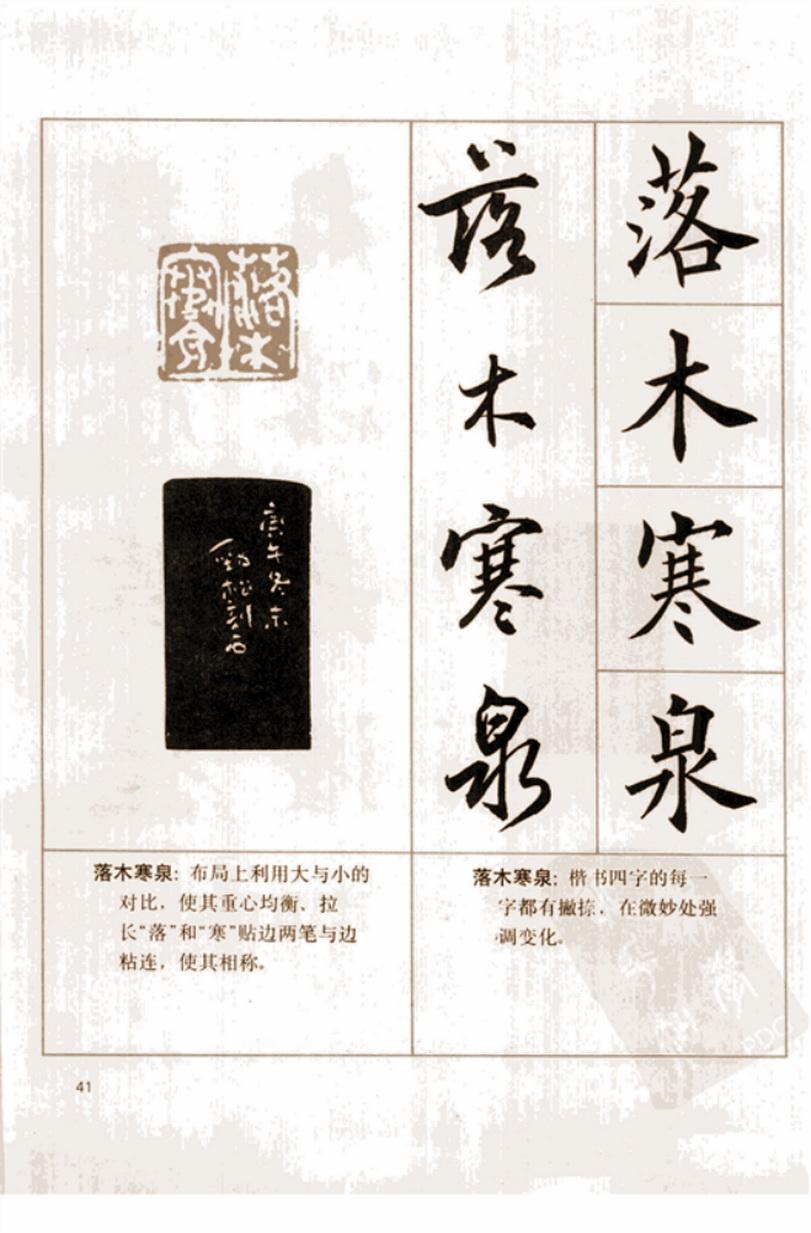 落
木
寒
泉
落
木
寒
泉
落木
庚午冬京
劲松刻石
落木寒泉：布局上利用大与小的
对比，使其重心均衡、拉
长“落”和“寒”贴边两笔与边
粘连，使其相称。
落木寒泉：楷书四字的每一
字都有撇捺，在微妙处强
调变化。
41